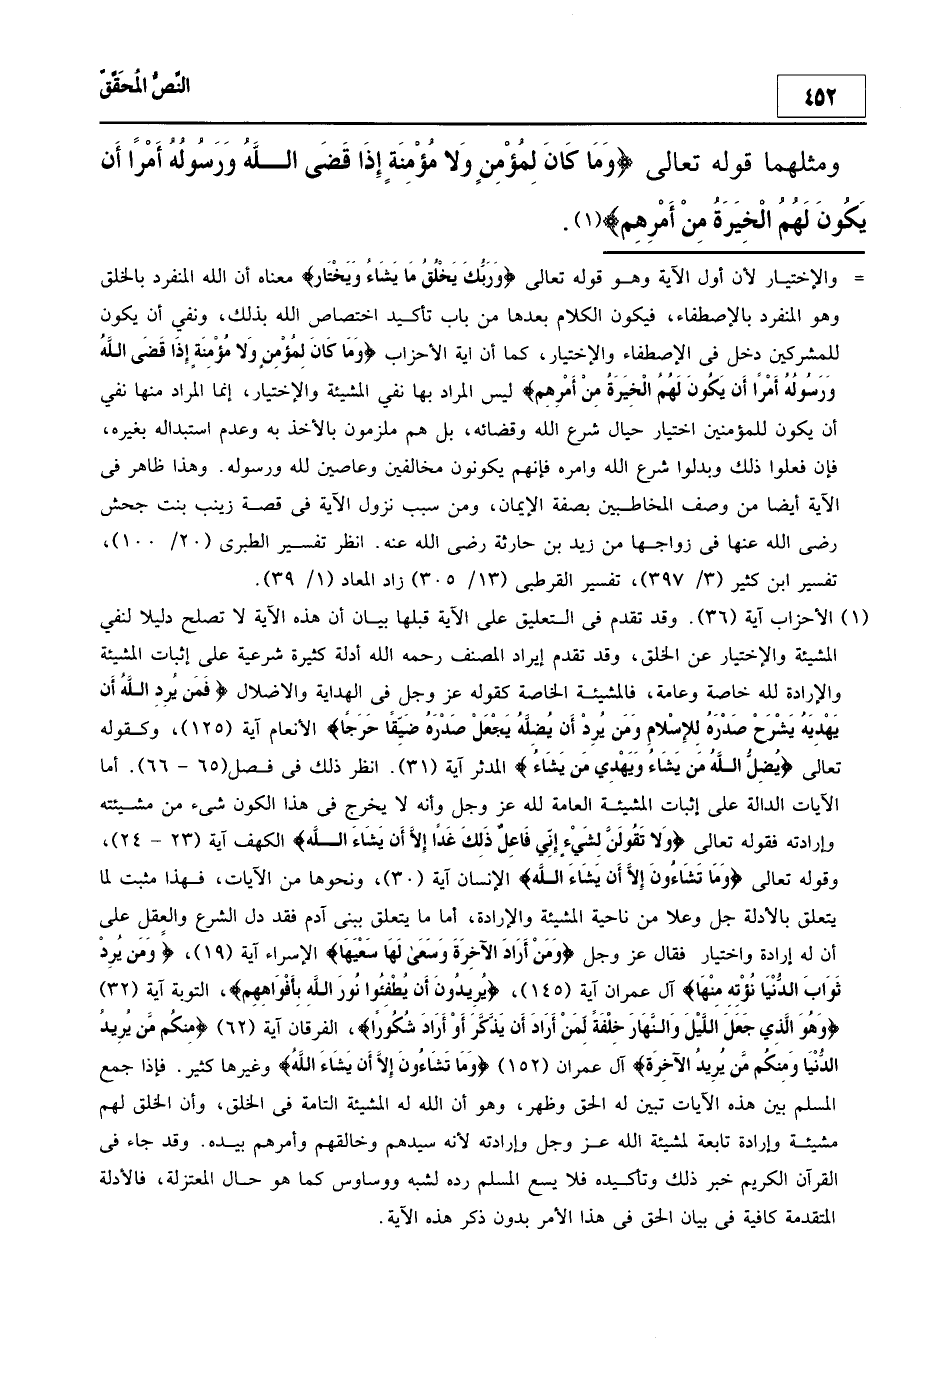 ٤٥٢
النَّصُّ المُحَقَّقُ
ومثلهما قوله تعالى ﴿وَمَا كَانَ لِمُؤْمِنٍ وَلا مُؤْمِنَةٍ إِذَا قَضَى اللَّهُ وَرَسُولُهُ أَمْرًا أَن
يَكُونَ لَهُمُ الْخِيَرَةُ مِنْ أَمْرِهِم﴾(١).
= والإختيار لأن أول الآية وهو قوله تعالى ﴿وَرَبُّكَ يَخْلُقُ مَا يَشَاءُ وَيَخْتَار﴾ معناه أن الله المنفرد بالخلق
وهو المنفرد بالإصطفاء، فيكون الكلام بعدها من باب تأكيد اختصاص الله بذلك، ونفي أن يكون
للمشركين دخل فى الإصطفاء والإختيار، كما أن اية الأحزاب ﴿وَمَا كَانَ لِمُؤْمِنٍ وَلا مُؤْمِنَةٍ إِذَا قَضَى اللَّهُ
وَرَسُولُهُ أَمْرًا أَن يَكُونَ لَهُمُ الْخِيَرَةُ مِنْ أَمْرِهِم﴾ ليس المراد بها نفي المشيئة والإختيار، إنما المراد منها نفي
أن يكون للمؤمنين اختيار حيال شرع الله وقضائه، بل هم ملزمون بالأخذ به وعدم استبداله بغيره،
فإن فعلوا ذلك وبدلوا شرع الله وامره فإنهم يكونون مخالفين وعاصين لله ورسوله. وهذا ظاهر فى
الآية أيضا من وصف المخاطبين بصفة الإيمان، ومن سبب نزول الآية فى قصة زينب بنت جحش
رضى الله عنها فى زواجها من زيد بن حارثة رضى الله عنه. انظر تفسير الطبرى (٢٠/ ١٠٠)،
تفسير ابن كثير (٣/ ٣٩٧)، تفسير القرطبى (١٣/ ٣٠٥) زاد المعاد (١/ ٣٩).
(١) الأحزاب آية (٣٦). وقد تقدم فى التعليق على الآية قبلها بيان أن هذه الآية لا تصلح دليلا لنفي
المشيئة والإختيار عن الخلق، وقد تقدم إيراد المصنف رحمه الله أدلة كثيرة شرعية على إثبات المشيئة
والإرادة لله خاصة وعامة، فالمشيئة الخاصة كقوله عز وجل فى الهداية والاضلال ﴿ فَمَن يُرِدِ اللَّهُ أَن
يَهْدِيَهُ يَشْرَحْ صَدْرَهُ لِلإِسْلامِ وَمَن يُرِدْ أَن يُضِلَّهُ يَجْعَلْ صَدْرَهُ ضَيِّقًا حَرَجًا﴾ الأنعام آية (١٢٥)، وكقوله
تعالى ﴿يُضِلُّ اللَّهُ مَن يَشَاءُ وَيَهْدِي مَن يَشَاءُ ﴾ المدثر آية (٣١). انظر ذلك فى فصل(٦٥ – ٦٦). أما
الآيات الدالة على إثبات المشيئة العامة لله عز وجل وأنه لا يخرج فى هذا الكون شىء من مشيئته
وإرادته فقوله تعالى ﴿وَلا تَقُولَنَّ لِشَيْءٍ إِنِّي فَاعِلٌ ذَلِكَ غَدًا إِلاَّ أَن يَشَاءَ اللَّه﴾ الكهف آية (٢٣ – ٢٤)،
وقوله تعالى ﴿وَمَا تَشَاءُونَ إِلاَّ أَن يَشَاءَ اللَّه﴾ الإنسان آية (٣٠)، ونحوها من الآيات، فهذا مثبت لما
يتعلق بالأدلة جل وعلا من ناحية المشيئة والإرادة، أما ما يتعلق ببنى آدم فقد دل الشرع والعقل على
أن له إرادة واختيار فقال عز وجل ﴿وَمَنْ أَرَادَ الآخِرَةَ وَسَعَىٰ لَهَا سَعْيَهَا﴾ الإسراء آية (١٩)، ﴿ وَمَن يُرِدْ
ثَوَابَ الدُّنْيَا نُؤْتِهِ مِنْهَا﴾ آل عمران آية (١٤٥)، ﴿يُرِيدُونَ أَن يُطْفِئُوا نُورَ اللَّهِ بِأَفْوَاهِهِم﴾، التوبة آية (٣٢)
﴿وَهُوَ الَّذِي جَعَلَ اللَّيْلَ وَالنَّهَارَ خِلْفَةً لِمَنْ أَرَادَ أَن يَذَّكَّرَ أَوْ أَرَادَ شُكُورًا﴾، الفرقان آية (٦٢) ﴿مِنكُم مَّن يُرِيدُ
الدُّنْيَا وَمِنكُم مَّن يُرِيدُ الآخِرَةَ﴾ آل عمران (١٥٢) ﴿وَمَا تَشَاءُونَ إِلاَّ أَن يَشَاءَ اللَّهُ﴾ وغيرها كثير. فإذا جمع
المسلم بين هذه الآيات تبين له الحق وظهر، وهو أن الله له المشيئة التامة فى الخلق، وأن الخلق لهم
مشيئة وإرادة تابعة لمشيئة الله عز وجل وإرادته لأنه سيدهم وخالقهم وأمرهم بيده. وقد جاء فى
القرآن الكريم خبر ذلك وتأكيده فلا يسع المسلم رده لشبه ووساوس كما هو حال المعتزلة، فالأدلة
المتقدمة كافية فى بيان الحق فى هذا الأمر بدون ذكر هذه الآية.